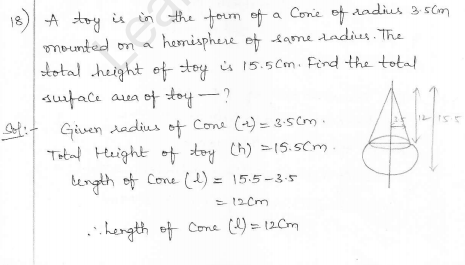 18) A toy is in the form of a Cone of radius 3.5Cm
mounted on a hemisphere of same radius. The
total height of toy is 15.5Cm. Find the total
surface area of toy — ?
Sol:- Given radius of Cone (r) = 3.5Cm.
Total Height of toy (h) = 15.5Cm.
length of Cone (l) = 15.5 - 3.5
= 12Cm
∴ Length of Cone (l) = 12Cm
12 15.5